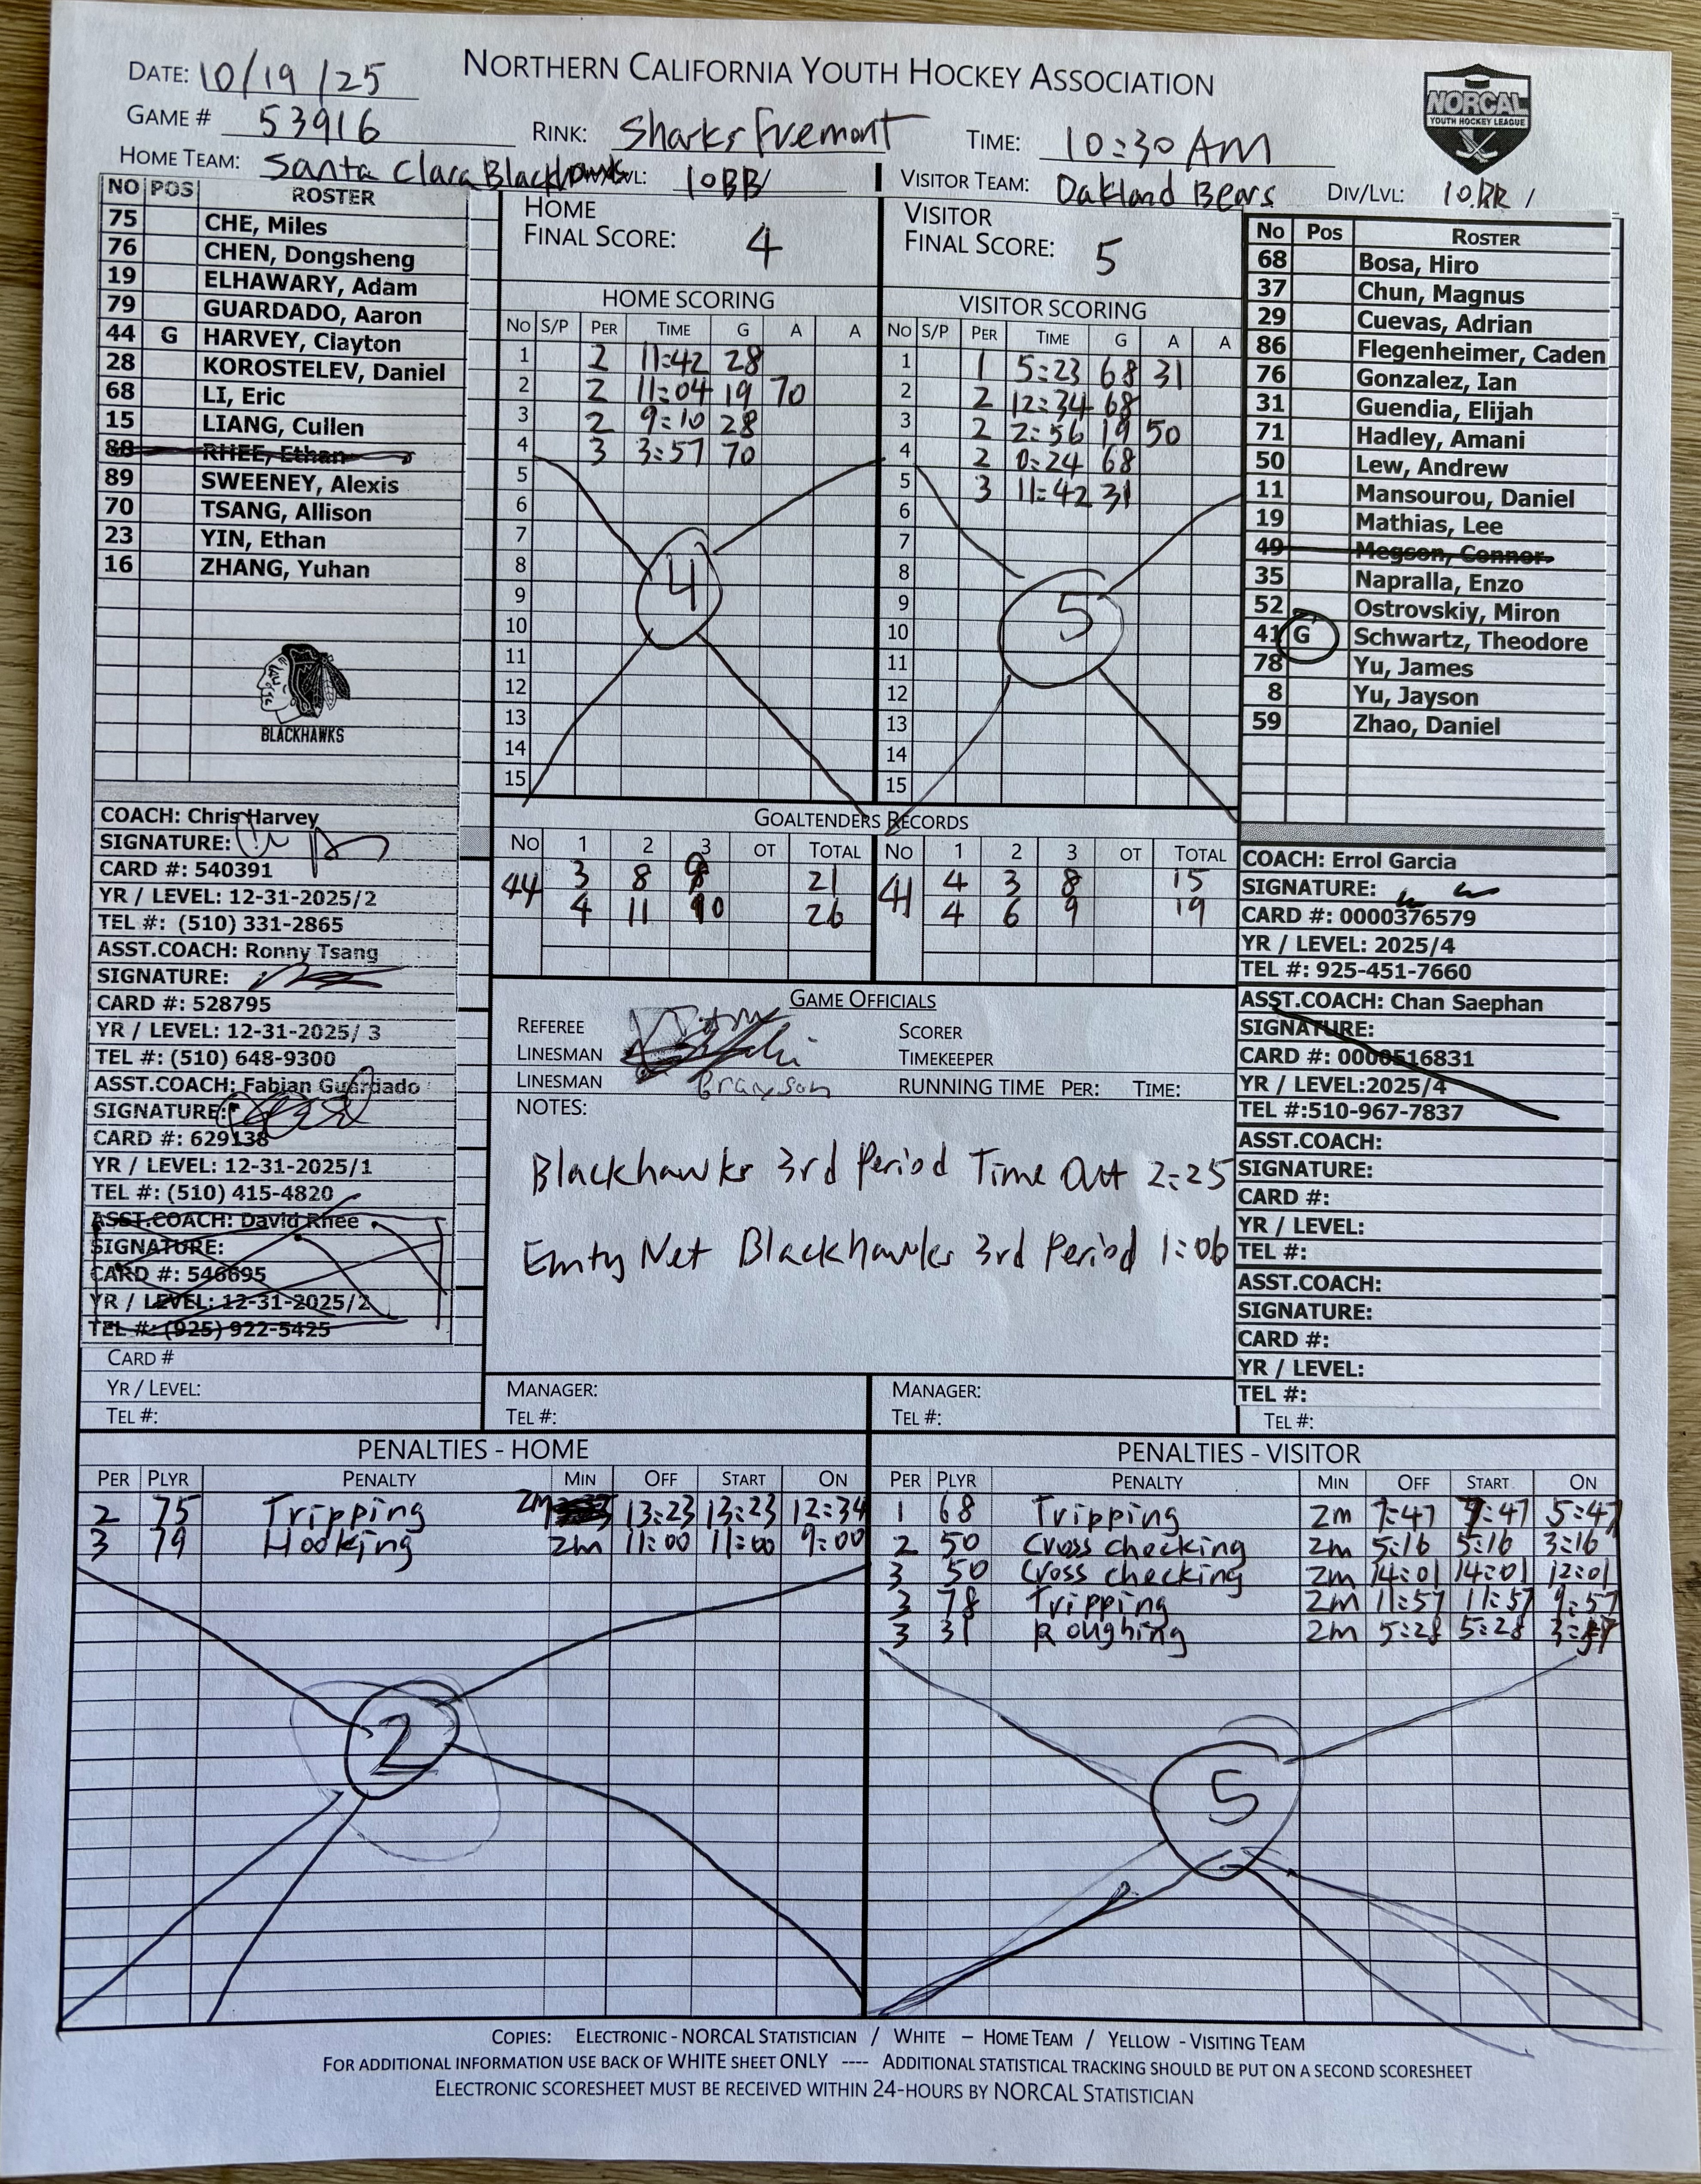 NORTHERN CALIFORNIA YOUTH HOCKEY ASSOCIATION
NORCAL
YOUTH HOCKEY LEAGUE
DATE: 10/19/25
GAME # 53916 RINK: Sharks Fremont TIME: 10:30 AM
HOME TEAM: Santa Clara Blackhawks 10BB/ VISITOR TEAM: Oakland Bears DIV/LVL: 10BB /
NO POS ROSTER
75 CHE, Miles
76 CHEN, Dongsheng
19 ELHAWARY, Adam
79 GUARDADO, Aaron
44 G HARVEY, Clayton
28 KOROSTELEV, Daniel
68 LI, Eric
15 LIANG, Cullen
88 RHEE, Ethan
89 SWEENEY, Alexis
70 TSANG, Allison
23 YIN, Ethan
16 ZHANG, Yuhan
BLACKHAWKS
HOME
FINAL SCORE: 4
VISITOR
FINAL SCORE: 5
HOME SCORING
NO S/P PER TIME G A A
1 2 11:42 28
2 2 11:04 19 70
3 2 9:10 28
4 3 3:57 70
5
6
7
8
9
10
11
12
13
14
15
4
VISITOR SCORING
NO S/P PER TIME G A A
1 1 5:23 68 31
2 2 12:34 68
3 2 2:56 19 50
4 2 0:24 68
5 3 11:42 31
6
7
8
9
10
11
12
13
14
15
5
No Pos ROSTER
68 Bosa, Hiro
37 Chun, Magnus
29 Cuevas, Adrian
86 Flegenheimer, Caden
76 Gonzalez, Ian
31 Guendia, Elijah
71 Hadley, Amani
50 Lew, Andrew
11 Mansourou, Daniel
19 Mathias, Lee
49 Megson, Connor
35 Napralla, Enzo
52 Ostrovskiy, Miron
41 G Schwartz, Theodore
78 Yu, James
8 Yu, Jayson
59 Zhao, Daniel
COACH: Chris Harvey
SIGNATURE:
CARD #: 540391
YR / LEVEL: 12-31-2025/2
TEL #: (510) 331-2865
ASST.COACH: Ronny Tsang
SIGNATURE:
CARD #: 528795
YR / LEVEL: 12-31-2025/ 3
TEL #: (510) 648-9300
ASST.COACH: Fabian Guardado
SIGNATURE:
CARD #: 629138
YR / LEVEL: 12-31-2025/1
TEL #: (510) 415-4820
ASST.COACH: David Rhee
SIGNATURE:
CARD #: 546695
YR / LEVEL: 12-31-2025/2
TEL #: (925) 922-5425
CARD #
YR / LEVEL:
TEL #:
GOALTENDERS RECORDS
NO 1 2 3 OT TOTAL NO 1 2 3 OT TOTAL
44 3 8 21 41 4 3 8 15
4 11 10 26 4 6 9 19
GAME OFFICIALS
REFEREE SCORER
LINESMAN TIMEKEEPER
LINESMAN Brayson RUNNING TIME PER: TIME:
NOTES:
Blackhawks 3rd Period Time Out 2:25
Emty Net Blackhawks 3rd Period 1:06
MANAGER:
TEL #:
MANAGER:
TEL #:
COACH: Errol Garcia
SIGNATURE:
CARD #: 0000376579
YR / LEVEL: 2025/4
TEL #: 925-451-7660
ASST.COACH: Chan Saephan
SIGNATURE:
CARD #: 0000516831
YR / LEVEL:2025/4
TEL #:510-967-7837
ASST.COACH:
SIGNATURE:
CARD #:
YR / LEVEL:
TEL #:
ASST.COACH:
SIGNATURE:
CARD #:
YR / LEVEL:
TEL #:
TEL #:
PENALTIES - HOME
PER PLYR PENALTY MIN OFF START ON
2 75 Tripping 2m 13:23 13:23 12:34
3 79 Hooking 2m 11:00 11:00 9:00
2
PENALTIES - VISITOR
PER PLYR PENALTY MIN OFF START ON
1 68 Tripping 2m 7:47 7:47 5:47
2 50 Cross checking 2m 5:16 5:16 3:16
3 50 Cross checking 2m 14:01 14:01 12:01
3 78 Tripping 2m 11:57 11:57 9:57
3 31 Roughing 2m 5:28 5:28
5
COPIES: ELECTRONIC - NORCAL STATISTICIAN / WHITE – HOME TEAM / YELLOW - VISITING TEAM
FOR ADDITIONAL INFORMATION USE BACK OF WHITE SHEET ONLY ---- ADDITIONAL STATISTICAL TRACKING SHOULD BE PUT ON A SECOND SCORESHEET
ELECTRONIC SCORESHEET MUST BE RECEIVED WITHIN 24-HOURS BY NORCAL STATISTICIAN